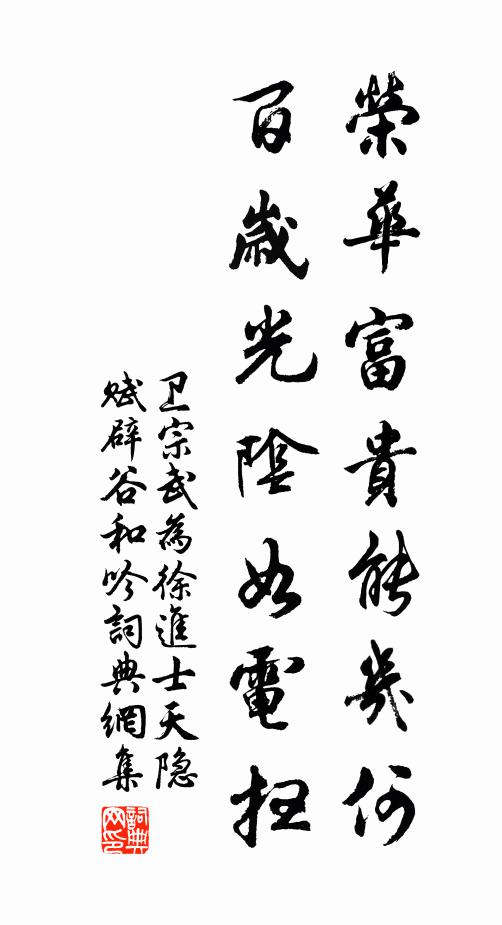 榮華富貴能幾何
百歲光陰如電扫
卫宗武為徐進士天隐
赋辟谷和吟詞典網集
詞典网印